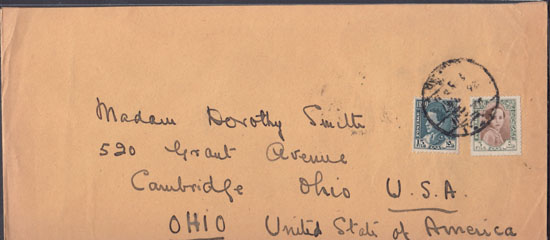 Madam Dorothy Smith
520 Grant Avenue
Cambridge Ohio U.S.A.
OHIO United State of America